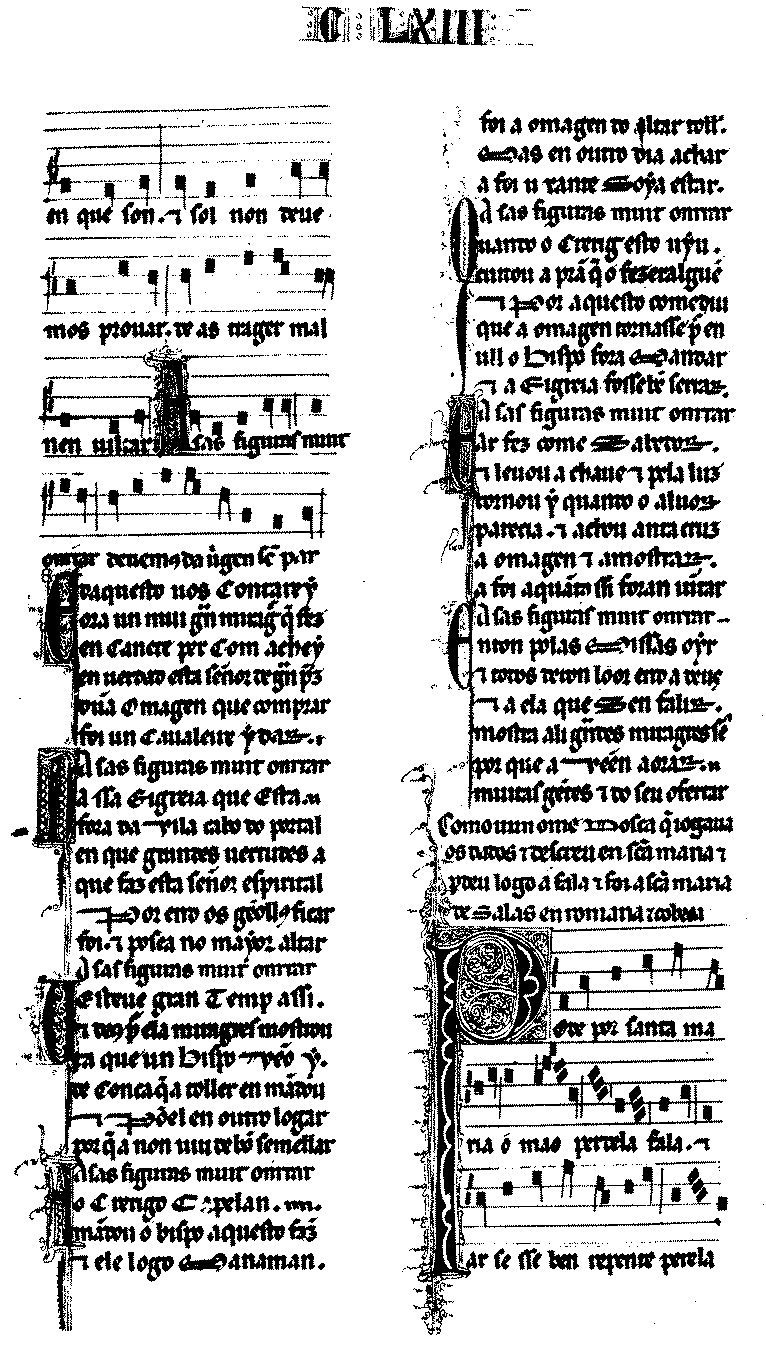 C LXIII
en que son. ⁊ sol non deue
mos prouar. de as trager mal
nen uiltar. A sas figuras muit
onrrar deuemos da uirgen sẽ par
E daquesto uos Contarey
ora un mui grã miragr q̃ fez
en Canete per Com achey
en uerdad esta señor de grã prez
por hũa Omagen que comprar
foi un Caualeir y dar.
A sas figuras muit onrrar
A ssa Eigreia que Esta.
fora da vila cabo do portal
en que grandes uertudes a
que faz esta señor espirital
Por end os geollos ficar
foi. ⁊ posea no mayor altar
A sas figuras muit onrrar
E steue gran Temp assi.
⁊ deus por ela miragres mostrou
ta que un Bispo veo y.
de Conca q̃a toller en mãdou
⁊ põela en outro logar
por q̃a non uiu de bõ semellar
A sas figuras muit onrrar
O Crerigo Capelan.
mãdou o bispo aquesto faz
⁊ ele logo Manaman.
foi a omagen do altar toll.
Mas en outro dia achar
a foi u xante Soya estar.
A sas figuras muit onrrar
Quando o Crerig esto uyu.
cuidou a prã q̃ o fezera alguẽ
⁊ Por aquesto comediu
que a omagen tornasse p̃ en
ull o Bispo fora Mandar
⁊ a Eigreia fosse bẽ serrar.
A sas figuras muit onrrar
E ar fez come Da ledor.
⁊ leuou a chaue ⁊ pela luz
tornou y quando o aluor
parecia. ⁊ achou ant a cruz
a omagen ⁊ amostrar.
a foi a quãtos ssi foran uiltar
A sas figuras muit onrrar
Enton polas Missas oyr
⁊ todos deron loor end a deus
⁊ a ela que Sen falir.
mostra ali grãdes miragres sẽ
por que a veen aorar.
muitas gẽtes ⁊ do seu ofertar
Como un ome Mosca q̃ iogaua
os dados ⁊ descreu en scã maria ⁊
pdeu logo a fala ⁊ foi a scã maria
de Salas en romaria ⁊ cobrou a
Pode por santa ma
ria o mao perdela fala. ⁊
ar se sse ben repente perela